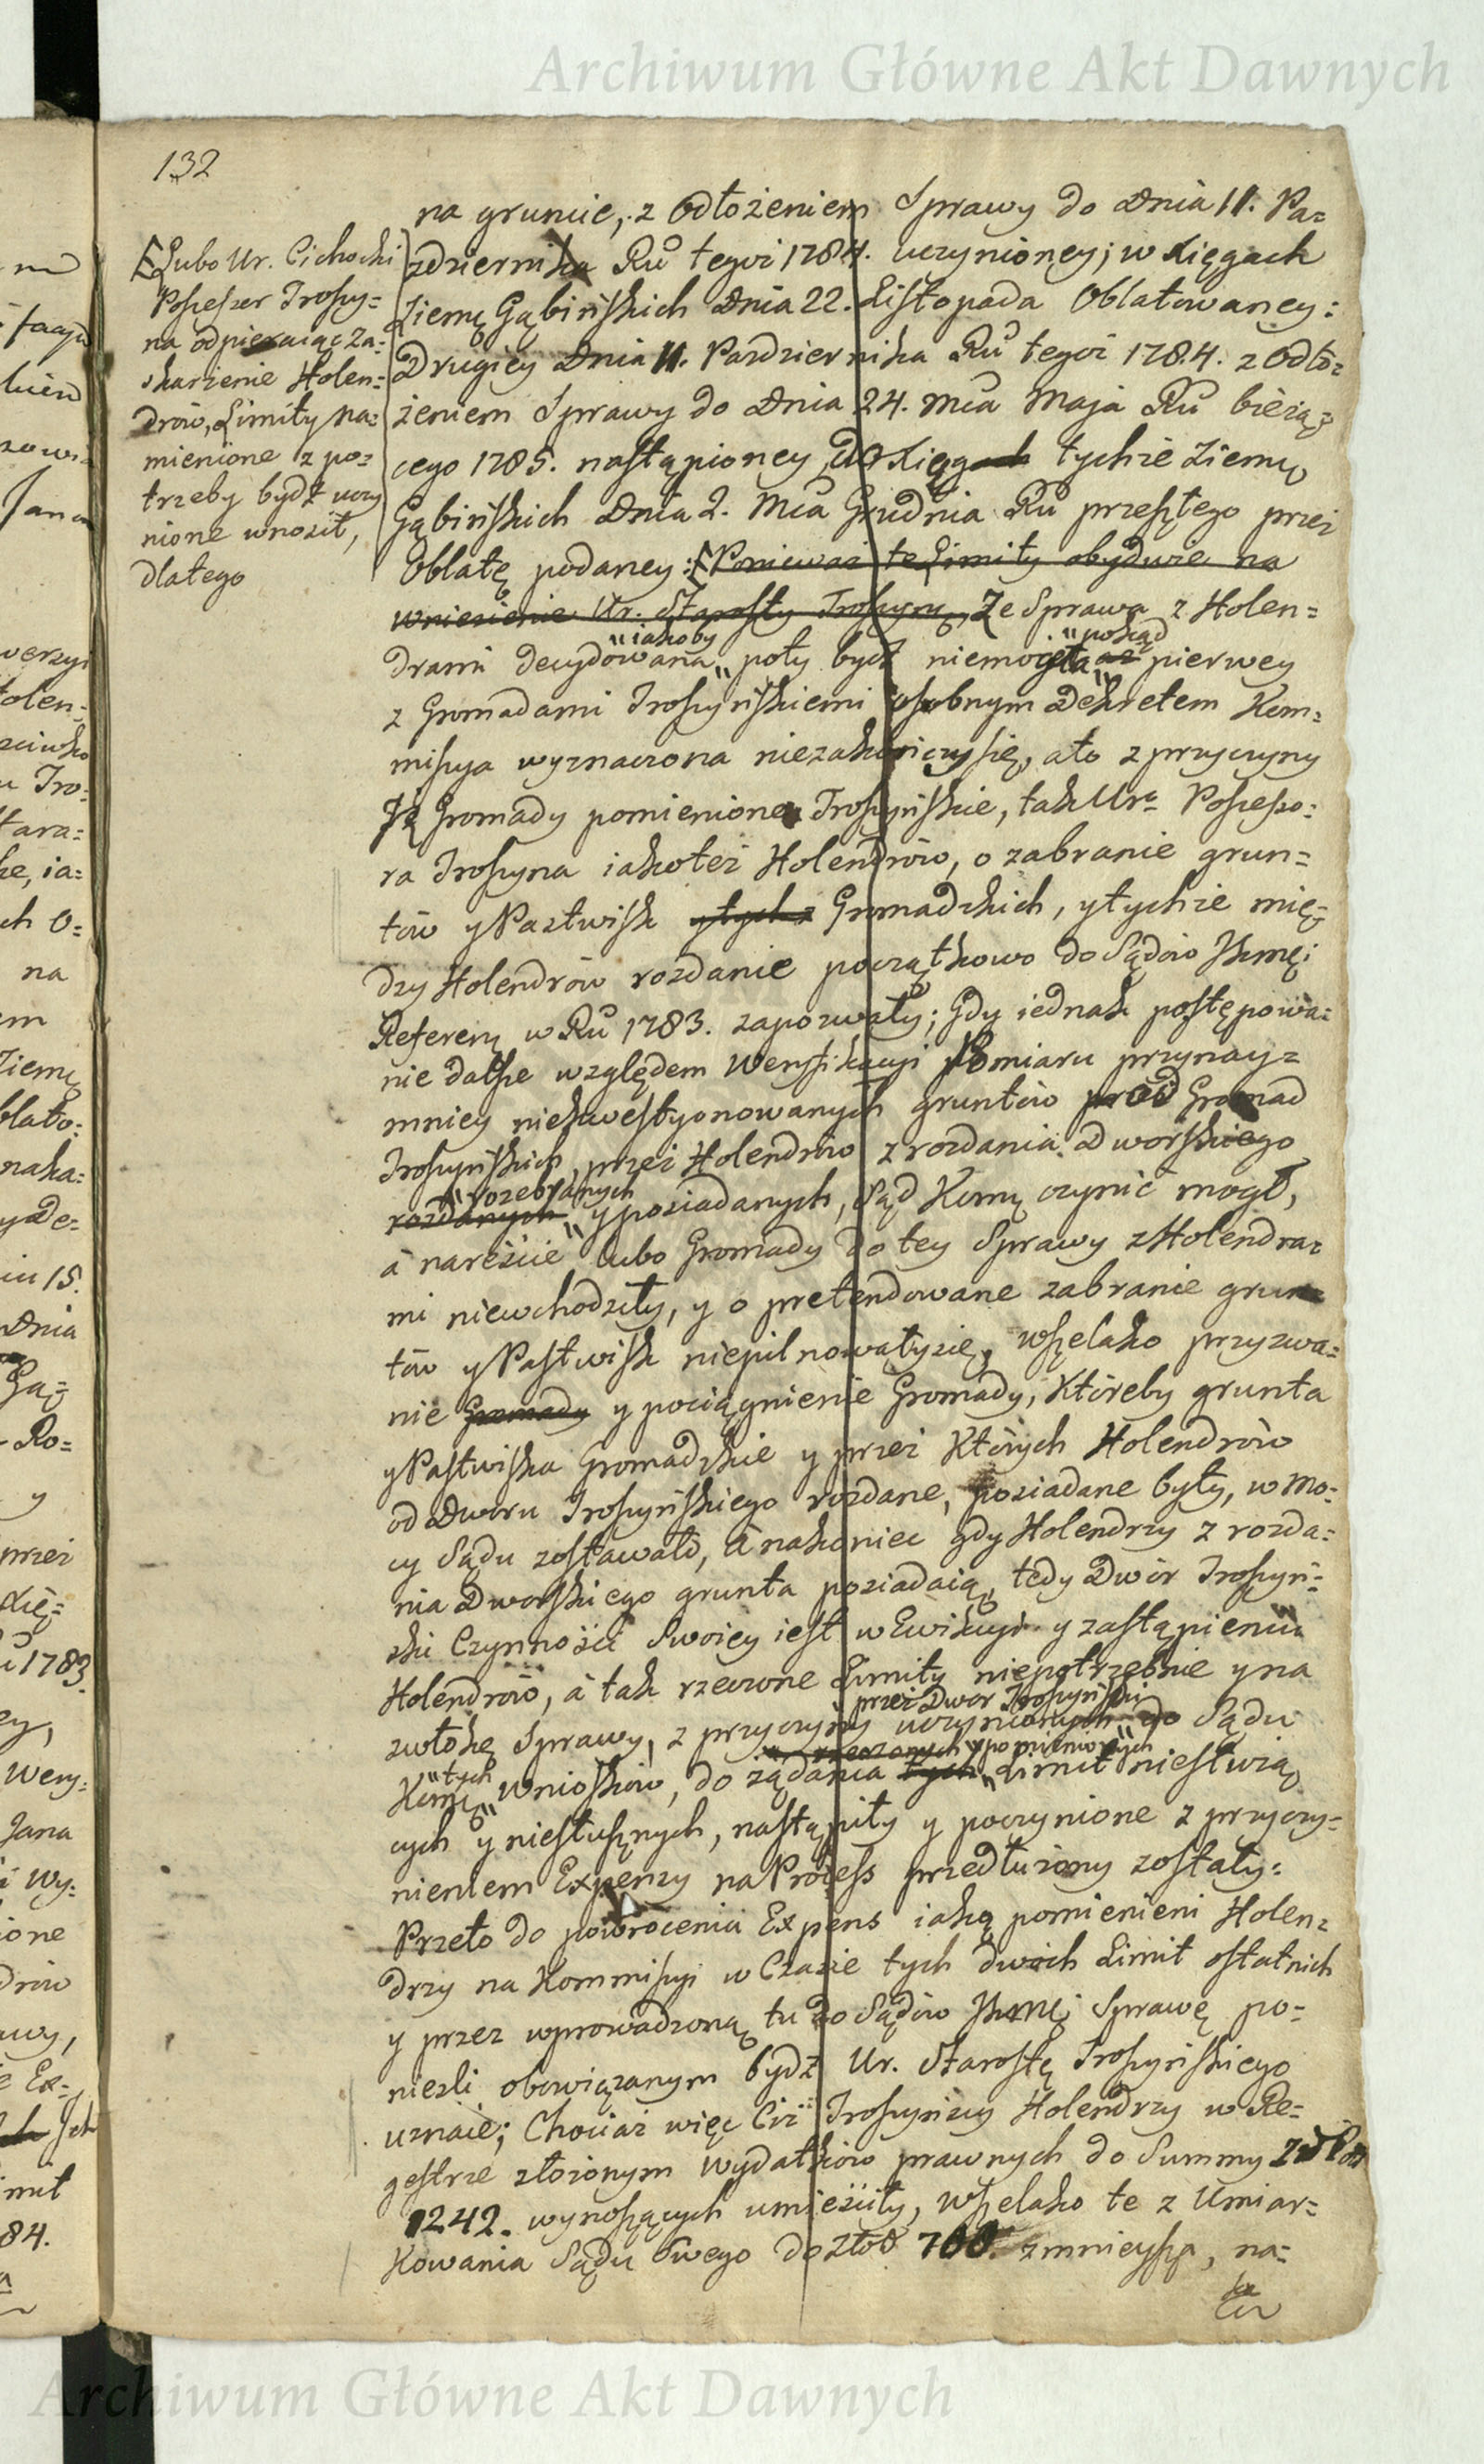 Archiwum Główne Akt Dawnych
132
na gruncie, z Odłożeniem Sprawy do Dnia 11. Pa=
zdziernika Ru tegoż 1784. uczynioney; w Xięgach
Ziemę Gąbińskich Dnia 22. Listopada Oblatowaney:
Drugiey Dnia 11. Pazdziernika Ru tegoż 1784. z Odło=
żeniem Sprawy do Dnia 24. Mca Maja Ru bieżą=
cego 1785. nastąpioney, do Xięg tychże Ziemę
Gąbińskich Dnia 2. Mca Grudnia Ru przeszłego przez
Oblatę podaney: [Poniewaz te Limity obydwie na
wniesienie Ur. Starosty Troszyna, Że Sprawa z Holen=
drami decydowana "iakoby" poty bydź niemogła "pokąd" pierwey
z Gromadami Troszyńskiemi osobnym Dekretem Kom=
missya wyznaczona niezakończy się, ato z przyczyny
Iż Gromady pomienione Troszyńskie, tak Ura Possesso=
ra Troszyna iakoteż Holendrów, o zabranie grun=
tów y Pastwisk y tych z Gromadzkich, y tychże mię=
dzy Holendrów rozdanie początkowo do Sądów
Referen w Ru 1783. zapozwały; Gdy iednak postępowa=
nie dalsze względem Weryfikacyi Pomiaru przynay=
mniey niekwestyonowanych gruntów od Gromad
Troszyńskich, przez Holendrów z rozdania Dworskiego
rozdanych "rozebranych" y posiadanych, Sąd Komę czynić mogł,
à nareście lubo Gromady do tey Sprawy z Holendra=
mi niewchodziły, y o pretendowane zabranie grun=
tów y Pastwisk niepilnowały się, wszelako przyzwa=
nie Gromady y pociągnienie Gromady, Któreby grunta
y Pastwiska Gromadzkie y przez Których Holendrów
od Dworu Troszyńskiego rozdane, posiadane były, w mo=
cy Sądu zostawało, à nakoniec gdy Holendrzy z rozda=
nia Dworskiego grunta posiadaią, tedy Dwór Troszyń=
ski Czynności Swoiey iest w Ewikcyi y zastąpieniu
Holendrów, à tak rzeczone Limity niepotrzebnie y na
zwłokę Sprawy, z przyczyny przez Dwor Troszyński uczynionych do Sądu
Komę "tych" wniosków, do żądania tych rzeczonych "pomienionych" Limit niestwią
cych y niesłusznych, nastąpiły y poczynione z przyczy=
nieniem Expensy na Process przedłużony zostały:
Przeto do powrocenia Expens iaką pomienieni Holen=
drzy na Kommissyi w Czasie tych dwóch Limit ostatnich
y przez wprowadzoną tu do Sądów Sprawę po=
niezli obowiązanym bydź Ur. Starostę Troszyńskiego
uznaie; Chociaż więc Ciż Troszyńscy Holendrzy w Re=
gestrze złożonym wydatków prawnych do Summy
1242. wynoszących umieściły, wszelako te z Umiar=
kowania Sądu swego do Złot 700. zmnieysza, na=
[Lubo Ur. Cichocki
Possessor Troszy=
na odpieraiąc Za=
skarżenie Holen=
drów, Limity na=
mienione z po=
trzeby bydź uczy
nione wnosił,
dlatego
Archiwum Główne Akt Dawnych